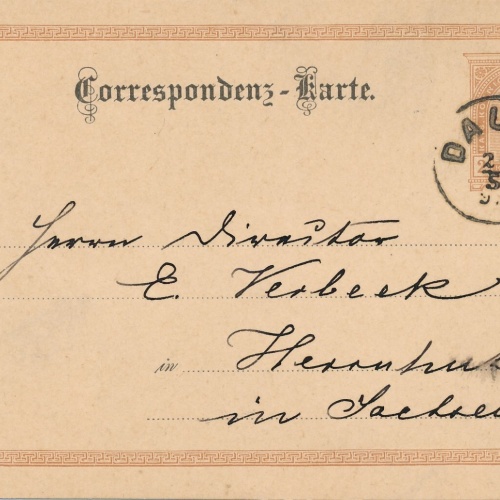 Correspondenz-Karte.
DAU
Herrn Director
E. Verbeek
in Herrnhu
in Sachse